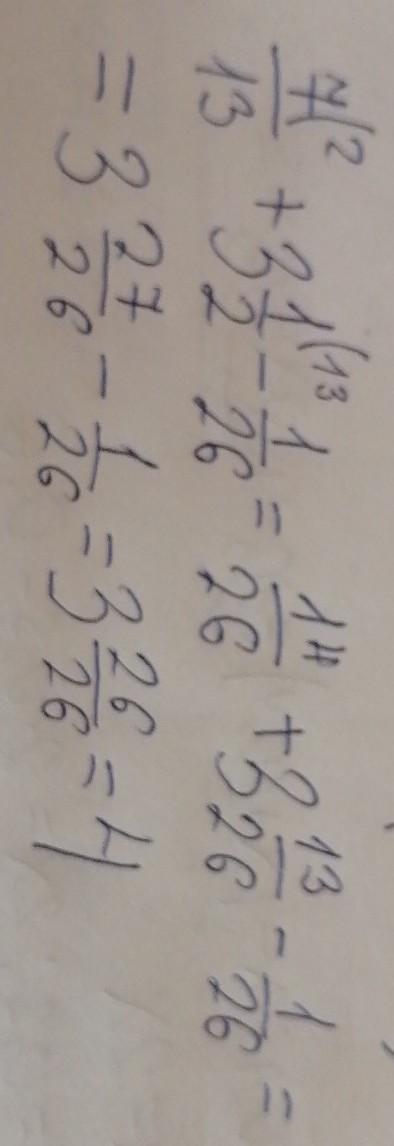 7/13 (2 + 3 1/2 (13 - 1/26 = 14/26 + 3 13/26 - 1/26 =
= 3 27/26 - 1/26 = 3 26/26 = 4